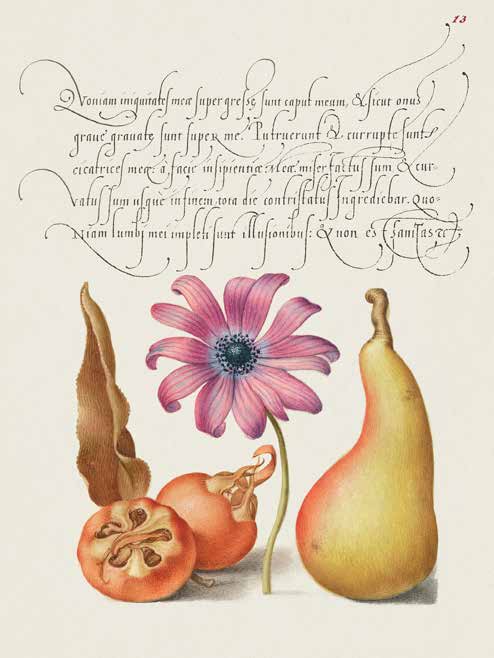 13
Quoniam iniquitates meæ supergresse sunt caput meum, & sicut onus
graue grauate sunt super me. Putruerunt & corrupte sunt
cicatrices meæ: à facie insipientiæ Meæ. miser factus sum & cur-
vatus sum usque in finem, tota die contristatus Ingrediebar. Quo-
Niam lumbi mei impleti sunt illusionibus: & non est sanitas